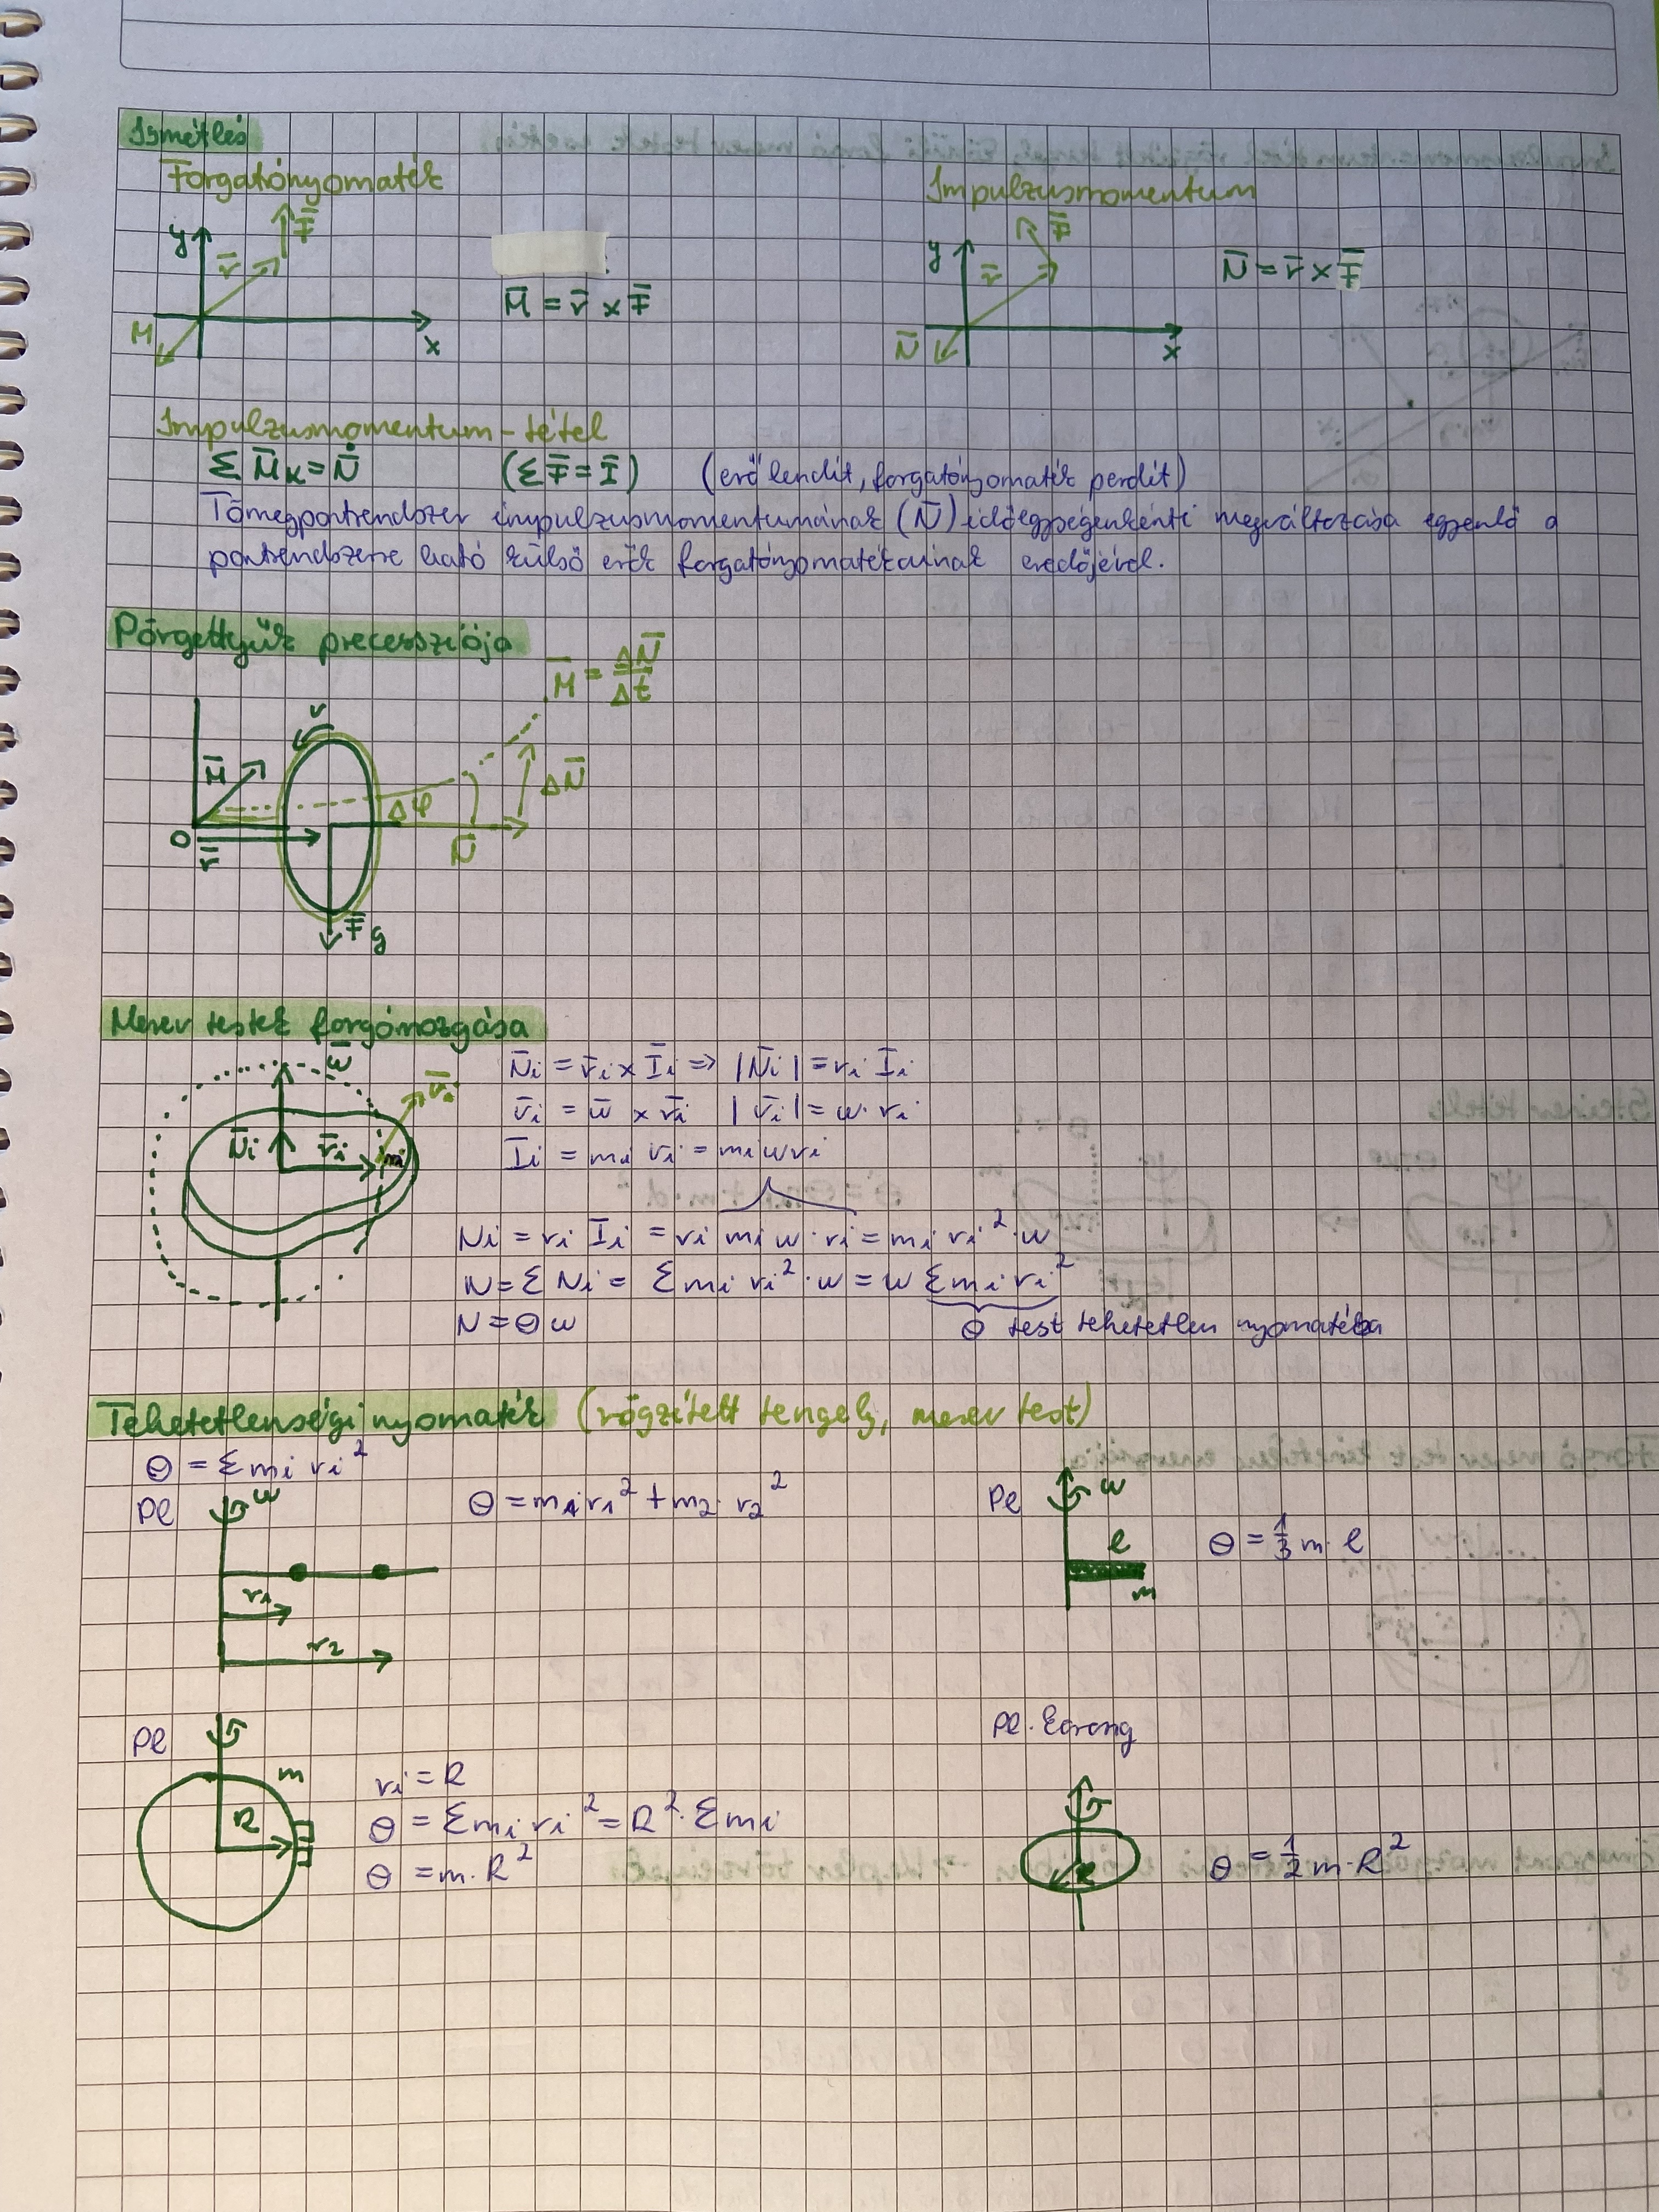 Ismétlés
Forgatónyomaték
y
r̄
F̄
M
x
M̄ = r̄ x F̄
Impulzusmomentum
y
r̄
F̄
N̄
x
N̄ = r̄ x F̄
Impulzusmomentum-tétel
Σ M̄ₖ = N̄̇ (Σ F̄ = Ī) (erő lendít, forgatónyomaték perdít)
Tömegpontrendszer impulzusmomentumának (N̄) időegységenkénti megváltozása egyenlő a
pontrendszerre ható külső erők forgatónyomatékainak eredőjével.
Pörgettyűk precessziója
M̄ = ΔN̄/Δt
v
M̄
ΔN̄
Δφ
O
r̄
N̄
F̄g
Merev testek forgómozgása
ω̄
v̄i
N̄i
r̄i
mi
N̄i = r̄i x Īi => |N̄i| = ri Īi
v̄i = ω̄ x r̄i |v̄i| = ω · ri
Īi = mi v̄i = mi ω ri
Ni = ri Īi = ri mi ω · ri = mi ri² · ω
N = Σ Ni = Σ mi ri² · ω = ω Σ mi ri²
N = Θ ω
Θ test tehetetlen nyomatéka
Tehetetlenségi nyomaték (rögzített tengely, merev test)
Θ = Σ mi ri²
Pl
ω
r₁
r₂
Θ = m₁ r₁² + m₂ · r₂²
Pl
ω
l
m
Θ = 1/3 m · l
Pl
m
R
ri = R
Θ = Σ mi ri² = R² · Σ mi
Θ = m · R²
Pl. korong
R
Θ = 1/2 m · R²